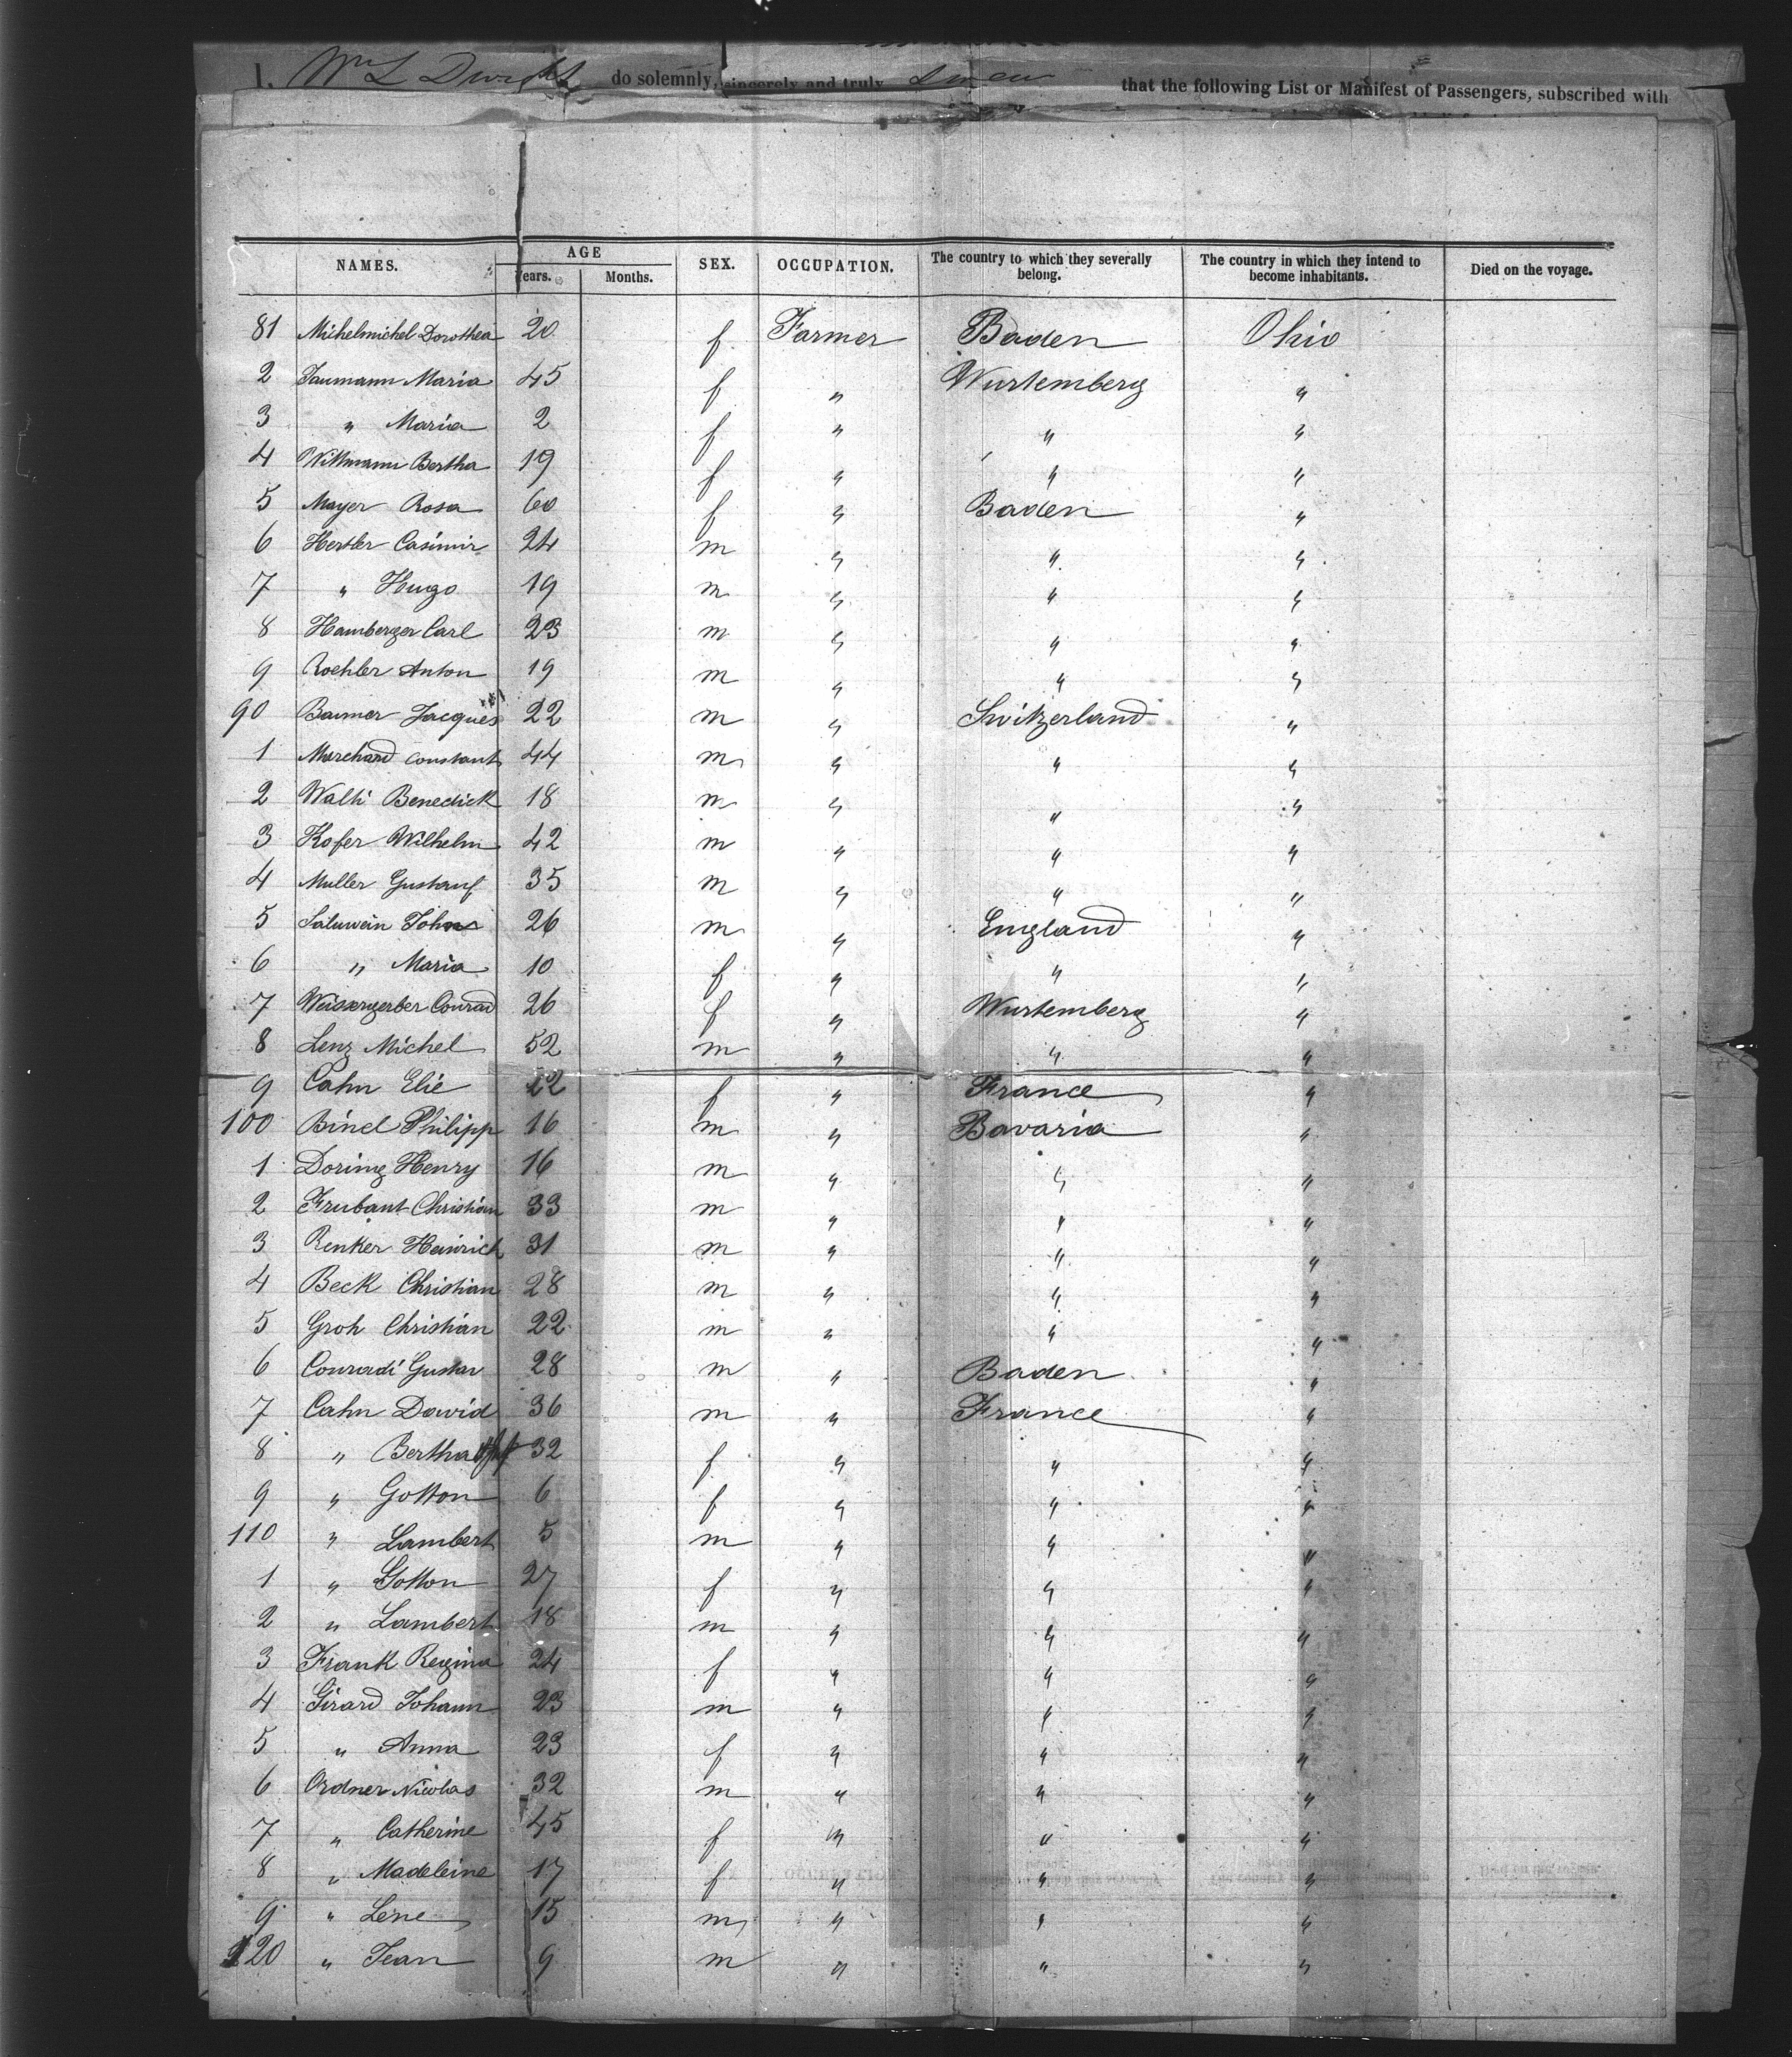 I, Wm L Dwight do solemnly, sincerely and truly swear that the following List or Manifest of Passengers, subscribed with
NAMES. AGE SEX. OCCUPATION. The country to which they severally belong. The country in which they intend to become inhabitants. Died on the voyage.
Years. Months.
81 Michelmichel Dorothea 20 f Farmer Baden Ohio
2 Taumann Maria 45 f " Wurtemberg "
3 " Maria 2 f " " "
4 Wittmann Bertha 19 f " " "
5 Mayer Rosa 60 f " Baden "
6 Hertler Casimir 24 m " " "
7 " Hugo 19 m " " "
8 Hamberger Carl 23 m " " "
9 Roehler Anton 19 m " " "
90 Baumer Jacques 22 m " Switzerland "
1 Marchand Constant 44 m " " "
2 Walti Benedick 18 m " " "
3 Kofer Wilhelm 42 m " " "
4 Muller Gustauf 35 m " " "
5 Saluwein John 26 m " England "
6 " Maria 10 f " " "
7 Weissergerber Conrad 26 f " Wurtemberg "
8 Lenz Michel 52 m " " "
9 Cahn Elie 22 f " France "
100 Binel Philipp 16 m " Bavaria "
1 Doring Henry 16 m " " "
2 Frubant Christian 33 m " " "
3 Renker Heinrich 31 m " " "
4 Beck Christian 28 m " " "
5 Groh Christian 22 m " " "
6 Conradi Gustav 28 m " Baden "
7 Cahn David 36 m " France "
8 " Bertha 32 f " " "
9 " Gotton 6 f " " "
110 " Lambert 5 m " " "
1 " Gotton 27 f " " "
2 " Lambert 18 m " " "
3 Frank Regina 24 f " " "
4 Girard Johann 23 m " " "
5 " Anna 23 f " " "
6 Ordner Nicolas 32 m " " "
7 " Catherine 45 f " " "
8 " Madeleine 17 f " " "
9 " Lene 15 m " " "
120 " Jean 9 m " " "